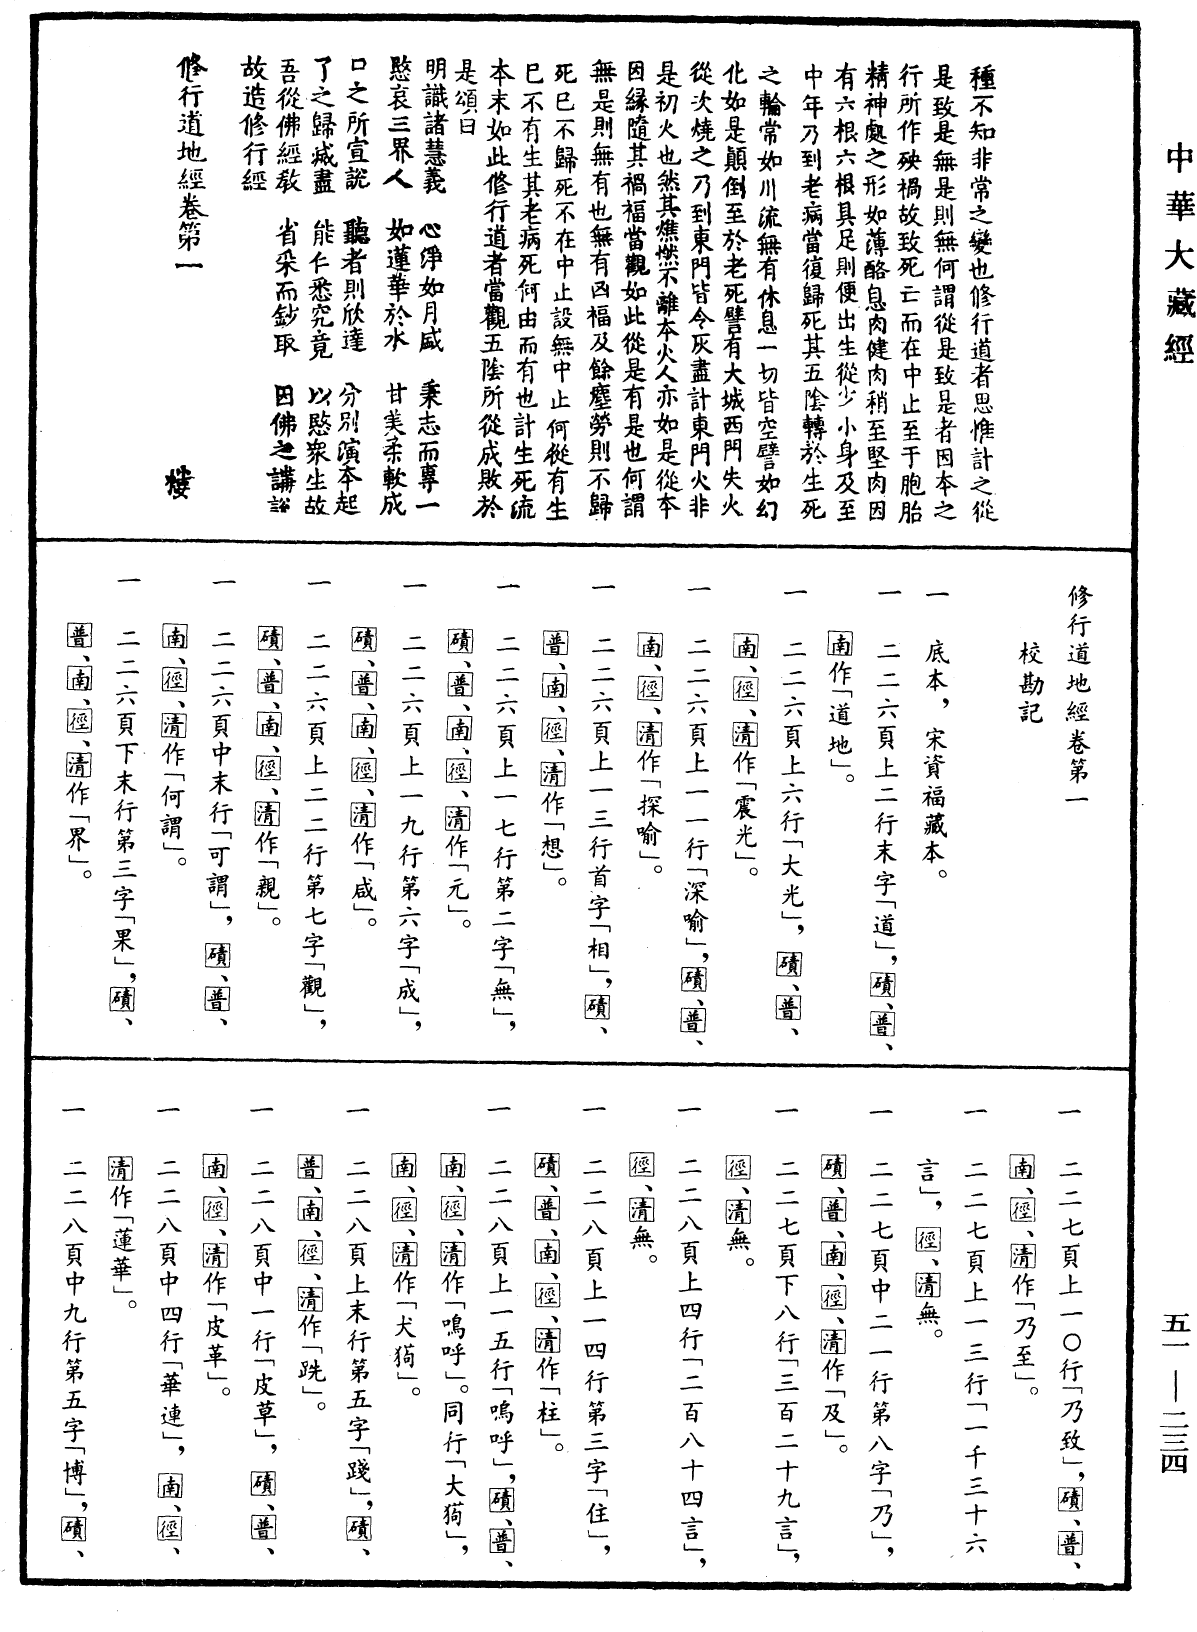 中華大藏經
種不知非常之變也修行道者思惟計之從
是致是無是則無何謂從是致是者因本之
行所作殃禍故致死亡而在中止至于胞胎
精神處之形如薄酪息肉健肉稍至堅肉因
有六根六根具足則便出生從少小身及至
中年乃到老病當復歸死其五陰轉於生死
之輪常如川流無有休息一切皆空譬如幻
化如是顛倒至於老死譬有大城西門失火
從次燒之乃到東門皆令灰盡計東門火非
是初火也然其燋燃不離本火人亦如是從本
因緣隨其禍福當觀如此從是有是也何謂
無是則無有也無有凶福及餘塵勞則不歸
死已不歸死不在中止設無中止何從有生
已不有生其老病死何由而有也計生死流
本末如此修行道者當觀五陰所從成敗於
是頌曰
明識諸慧義　心淨如月盛　秉志而專一
愍哀三界人　如蓮華於水　甘美柔軟成
口之所宣說　聽者則欣達　分別演本起
了之歸滅盡　能仁悉究竟　以愍眾生故
吾從佛經教　省采而鈔取　因佛之講說
故造修行經
修行道地經卷第一
修行道地經卷第一
校勘記
一　底本，宋資福藏本。
一　二二六頁上二行末字「道」，磧、普、
南作「道地」。
一　二二六頁上六行「大光」，磧、普、
南、徑、清作「震光」。
一　二二六頁上一一行「深喻」，磧、普、
南、徑、清作「探喻」。
一　二二六頁上一三行首字「相」，磧、
普、南、徑、清作「想」。
一　二二六頁上一七行第二字「無」，
磧、普、南、徑、清作「元」。
一　二二六頁上一九行第六字「成」，
磧、普、南、徑、清作「咸」。
一　二二六頁上二二行第七字「觀」，
磧、普、南、徑、清作「親」。
一　二二六頁中末行「可謂」，磧、普、
南、徑、清作「何謂」。
一　二二六頁下末行第三字「果」，磧、
普、南、徑、清作「界」。
一　二二七頁上一〇行「乃致」，磧、普、
南、徑、清作「乃至」。
一　二二七頁上一三行「一千三十六
言」，徑、清無。
一　二二七頁中二一行第八字「乃」，
磧、普、南、徑、清作「及」。
一　二二七頁下八行「三百二十九言」，
徑、清無。
一　二二八頁上四行「二百八十四言」，
徑、清無。
一　二二八頁上一四行第三字「住」，
磧、普、南、徑、清作「柱」。
一　二二八頁上一五行「嗚呼」，磧、普、
南、徑、清作「鳴呼」。同行「大㺃」，
南、徑、清作「犬㺃」。
一　二二八頁上末行第五字「踐」，磧、
普、南、徑、清作「跣」。
一　二二八頁中一行「皮草」，磧、普、
南、徑、清作「皮革」。
一　二二八頁中四行「華連」，南、徑、
清作「蓮華」。
一　二二八頁中九行第五字「博」，磧、
五一—二三四